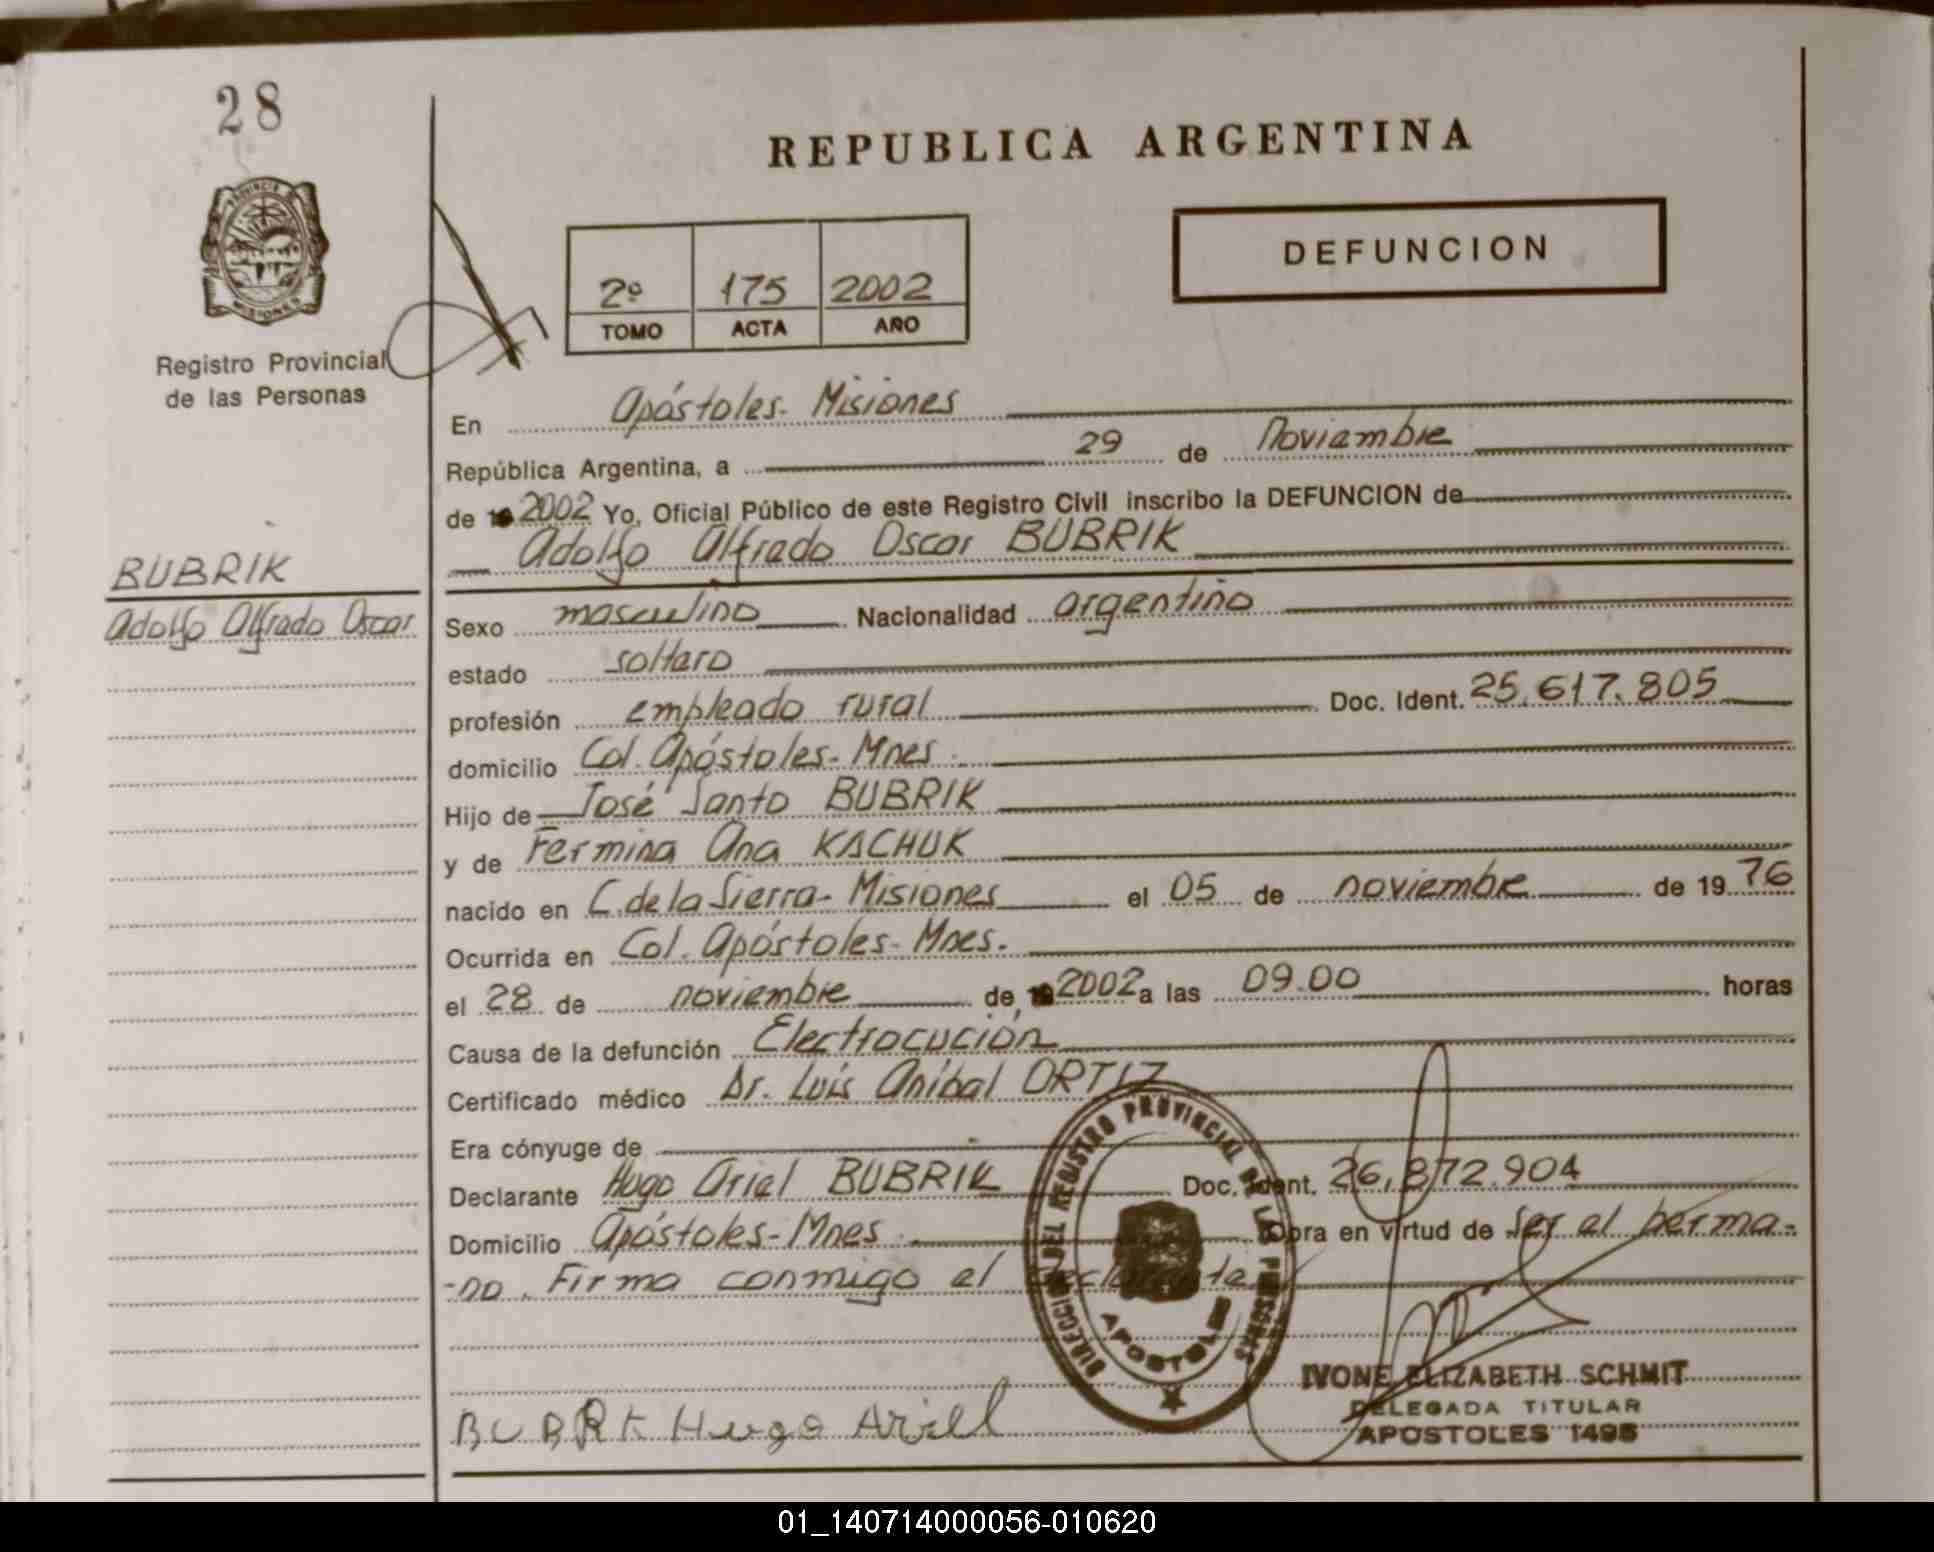 28
REPUBLICA ARGENTINA
PROVINCIA DE
MISIONES
Registro Provincial
de las Personas
2º 175 2002
TOMO ACTA AÑO
DEFUNCION
En Apóstoles- Misiones
República Argentina, a 29 de Noviembre
de 2002 Yo, Oficial Público de este Registro Civil inscribo la DEFUNCION de
Adolfo Alfredo Oscar BUBRIK
BUBRIK
Adolfo Alfredo Oscar
Sexo masculino Nacionalidad argentino
estado soltero
profesión empleado rural Doc. Ident. 25.617.805
domicilio Col. Apóstoles- Mnes.
Hijo de José Santo BUBRIK
y de Fermina Ana KACHUK
nacido en C. de la Sierra- Misiones el 05 de noviembre de 1976
Ocurrida en Col. Apóstoles- Mnes.
el 28 de noviembre de 2002 a las 09.00 horas
Causa de la defunción Electrocución
Certificado médico Dr. Luis Aníbal ORTIZ
Era cónyuge de
Declarante Hugo Ariel BUBRIK Doc. Ident. 26.872.904
Domicilio Apóstoles- Mnes. Obra en virtud de ser el herma-
-no. Firma conmigo el declarante
DIRECCION DEL REGISTRO PROVINCIAL DE LAS PERSONAS
APOSTOLES
IVONE ELIZABETH SCHMIT
DELEGADA TITULAR
APOSTOLES 1495
BUBRIK Hugo Ariel
01_140714000056-010620